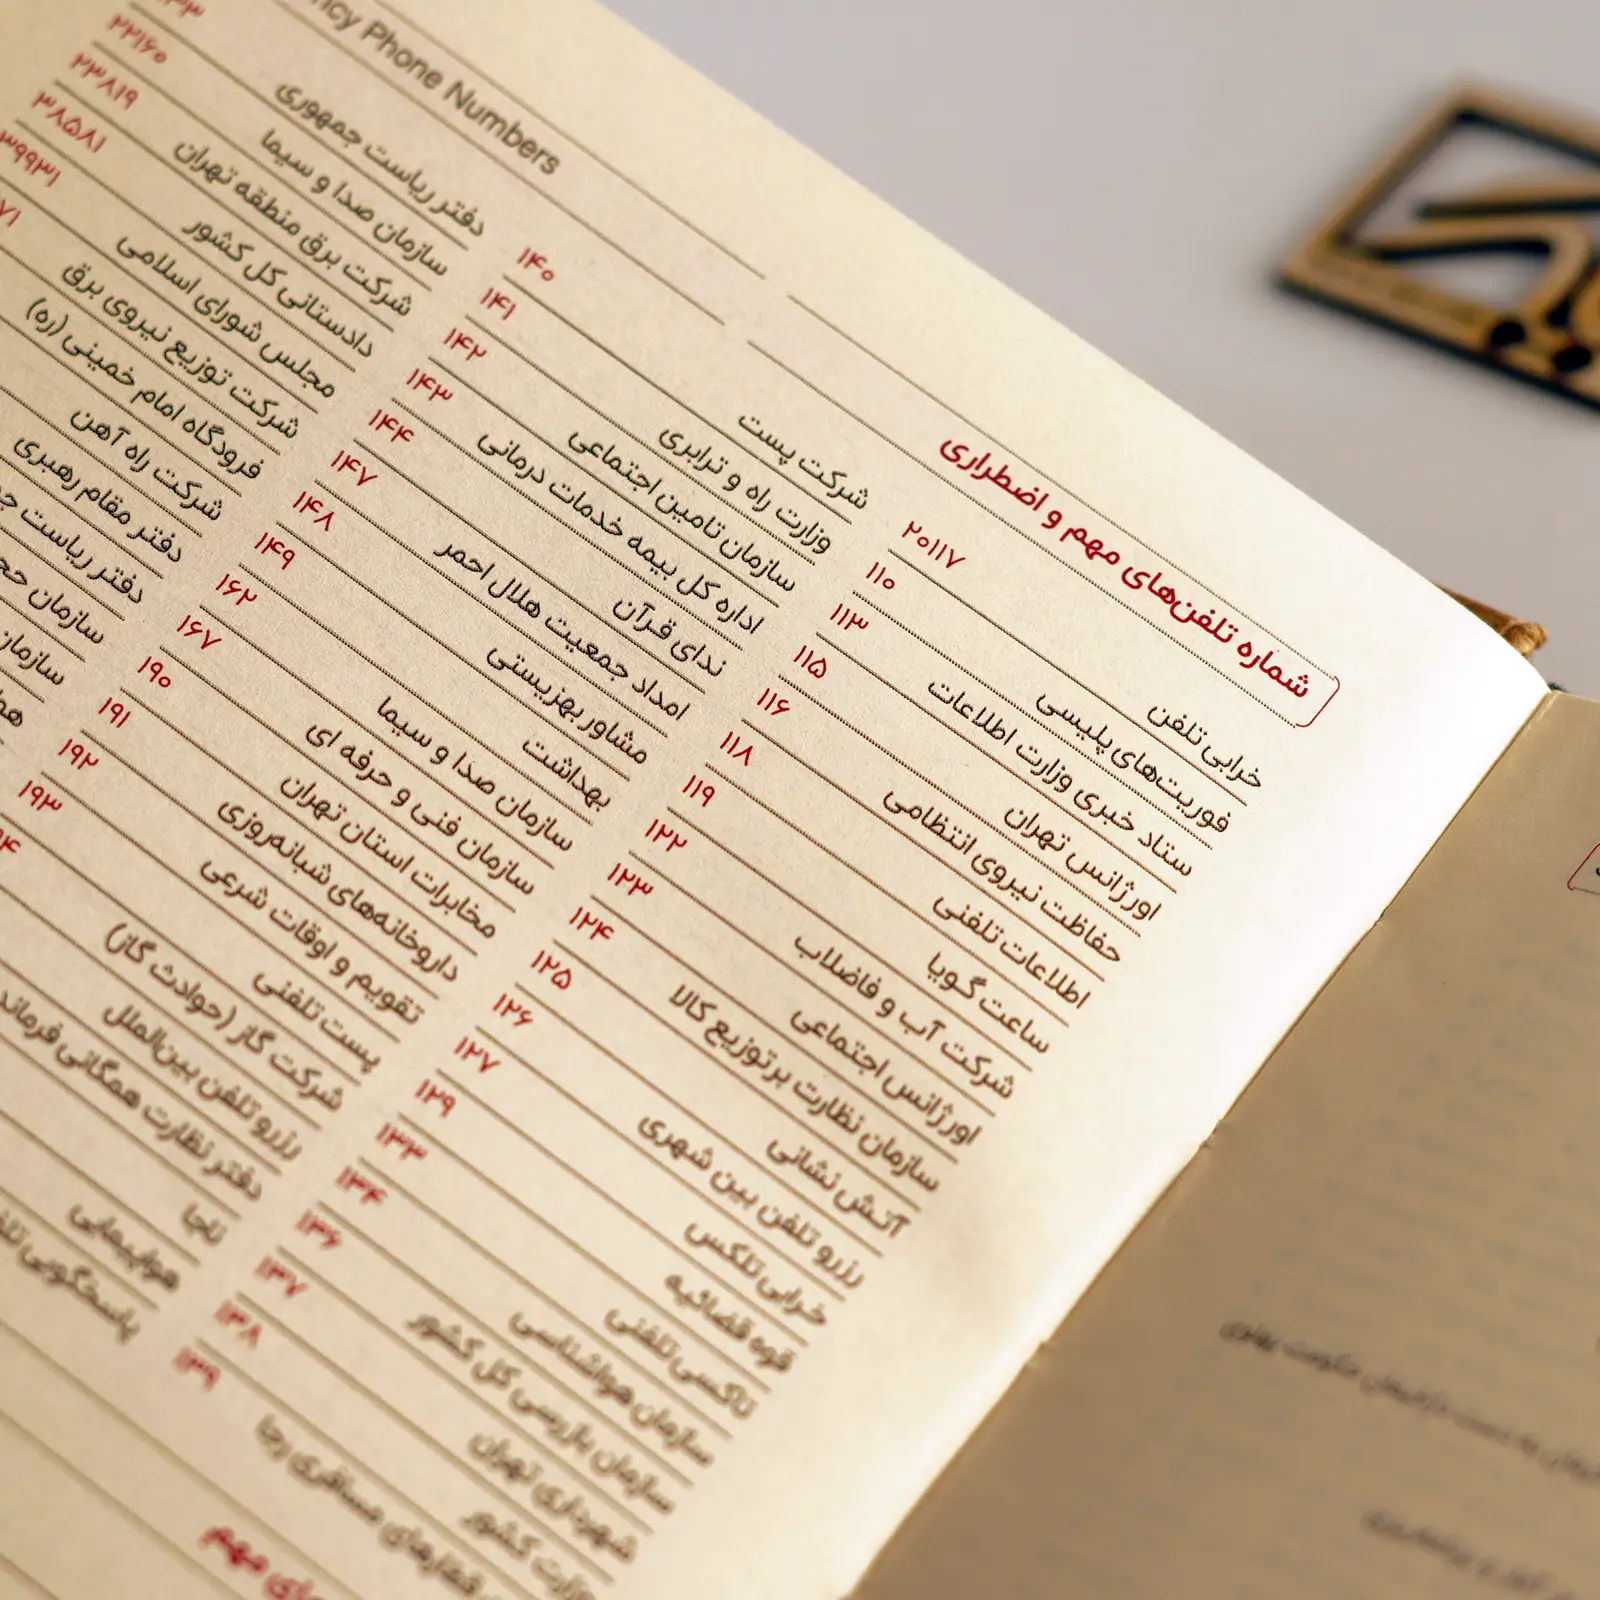 شماره تلفن‌های مهم و اضطراری
Phone Numbers
خرابی تلفن ۲۰۱۱۷
فوریت‌های پلیسی ۱۱۰
ستاد خبری وزارت اطلاعات ۱۱۳
اورژانس تهران ۱۱۵
حفاظت نیروی انتظامی ۱۱۶
اطلاعات تلفنی ۱۱۸
ساعت گویا ۱۱۹
شرکت آب و فاضلاب ۱۲۲
اورژانس اجتماعی ۱۲۳
سازمان نظارت بر توزیع کالا ۱۲۴
آتش نشانی ۱۲۵
رزرو تلفن بین شهری ۱۲۶
خرابی تلکس ۱۲۷
قوه قضائیه ۱۲۹
تاکسی تلفنی ۱۳۳
سازمان هواشناسی ۱۳۴
سازمان بازرسی کل کشور ۱۳۶
شهرداری تهران ۱۳۷
وزارت کشور ۱۳۸
قطارهای مسافری رجا ۱۳۹
شرکت پست ۱۴۰
وزارت راه و ترابری ۱۴۱
سازمان تامین اجتماعی ۱۴۲
اداره کل بیمه خدمات درمانی ۱۴۳
ندای قرآن ۱۴۴
امداد جمعیت هلال احمر ۱۴۷
مشاور بهزیستی ۱۴۸
بهداشت ۱۴۹
سازمان صدا و سیما ۱۶۲
سازمان فنی و حرفه ای ۱۶۷
مخابرات استان تهران ۱۹۰
داروخانه‌های شبانه‌روزی ۱۹۱
تقویم و اوقات شرعی ۱۹۲
پست تلفنی ۱۹۳
شرکت گاز (حوادث گاز)
رزرو تلفن بین‌الملل
دفتر نظارت همگانی
ناجا
هواپیمایی
پاسخگویی
دفتر ریاست جمهوری
سازمان صدا و سیما ۲۲۱۶۰
شرکت برق منطقه تهران ۲۳۸۱۹
دادستانی کل کشور ۳۸۵۸۱
مجلس شورای اسلامی ۳۹۹۳۱
شرکت توزیع نیروی برق
فرودگاه امام خمینی (ره)
شرکت راه آهن
دفتر مقام رهبری
دفتر ریاست
سازمان
سازمان
مهم